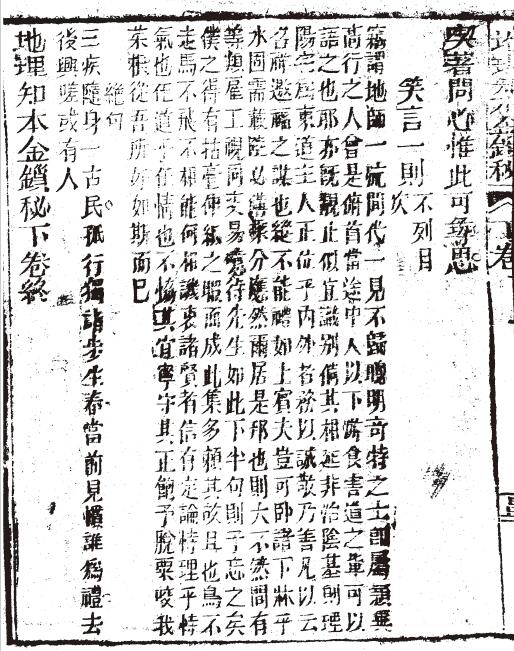 地理知本金鎖秘 下卷
契著問心惟此可尋思
笑言一則 不列目次
竊謂地師一流間代一見不歸聰明奇特之士即屬類異
高行之人曾是俯首當途中人以下躋食害道之輩可以
語之也耶亦既觀止似宜識別倘其相延非治陰基則理
陽宅為東道主人正位乎內外者務以誠敬乃善凡以云
名師邀福之謀也縱不能禮如上賓夫豈可卧諸下牀乎
水固需載陸必藉乘分應然爾居是邦也則大不然間有
等類屋工硯河交易憂待先生如此下半句則予忘之矣
僕之得有拈毫伸紙之暇而成此集多賴其故且也鳥不
走馬不飛不相能何相譏衷諸賢者信有定論恃理乎恃
氣也任道乎任情也不協其宜寧守其正飽予脫粟咬我
菜根從吾所好如斯而已
絶句
三疾隨身一古民孤行獨詣步生春當前見慣誰為禮去
後興嗟或有人
地理知本金鎖秘下卷終